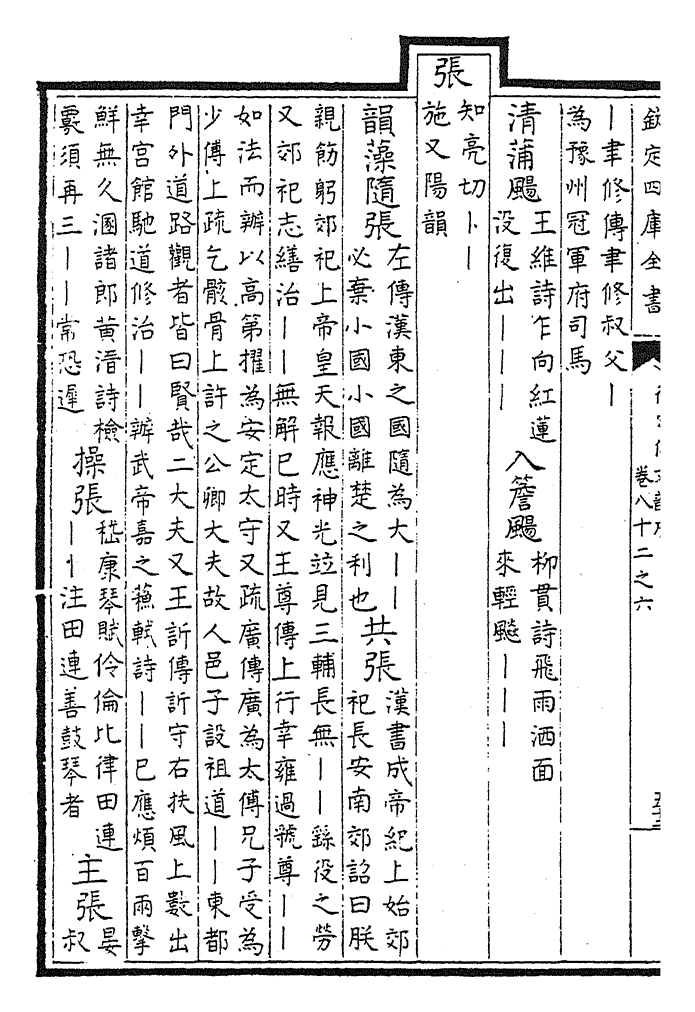 欽定四庫全書
卷八十二之六
丨聿修傳聿修叔父丨
為豫州冠軍府司馬
清蒲颺 王維詩乍向紅蓮
没復出丨丨丨
入簷颺 柳貫詩飛雨洒面
來輕丨丨丨
張
知亮切卜丨
施又陽韻
韻藻隨張 左傳漢東之國隨為大丨丨
必棄小國小國離楚之利也
共張 漢書成帝紀上始郊
祀長安南郊詔曰朕
親飭躬郊祀上帝皇天報應神光竝見三輔長無丨丨繇役之勞
又郊祀志繕治丨丨無解已時又王尊傳上行幸雍過虢尊丨丨
如法而辦以高第擢為安定太守又疏廣傳廣為太傅兄子受為
少傅上疏乞骸骨上許之公卿大夫故人邑子設祖道丨丨東都
門外道路觀者皆曰賢哉二大夫又王訢傳訢守右扶風上數出
幸宫館馳道修治丨丨辦武帝嘉之蘓軾詩丨丨已應煩百兩擊
鮮無久溷諸郎黄溍詩檢
覆須再三丨丨常恐遲
操張 嵇康琴賦伶倫比律田連
丨丨注田連善鼓琴者
主張 晏
叔